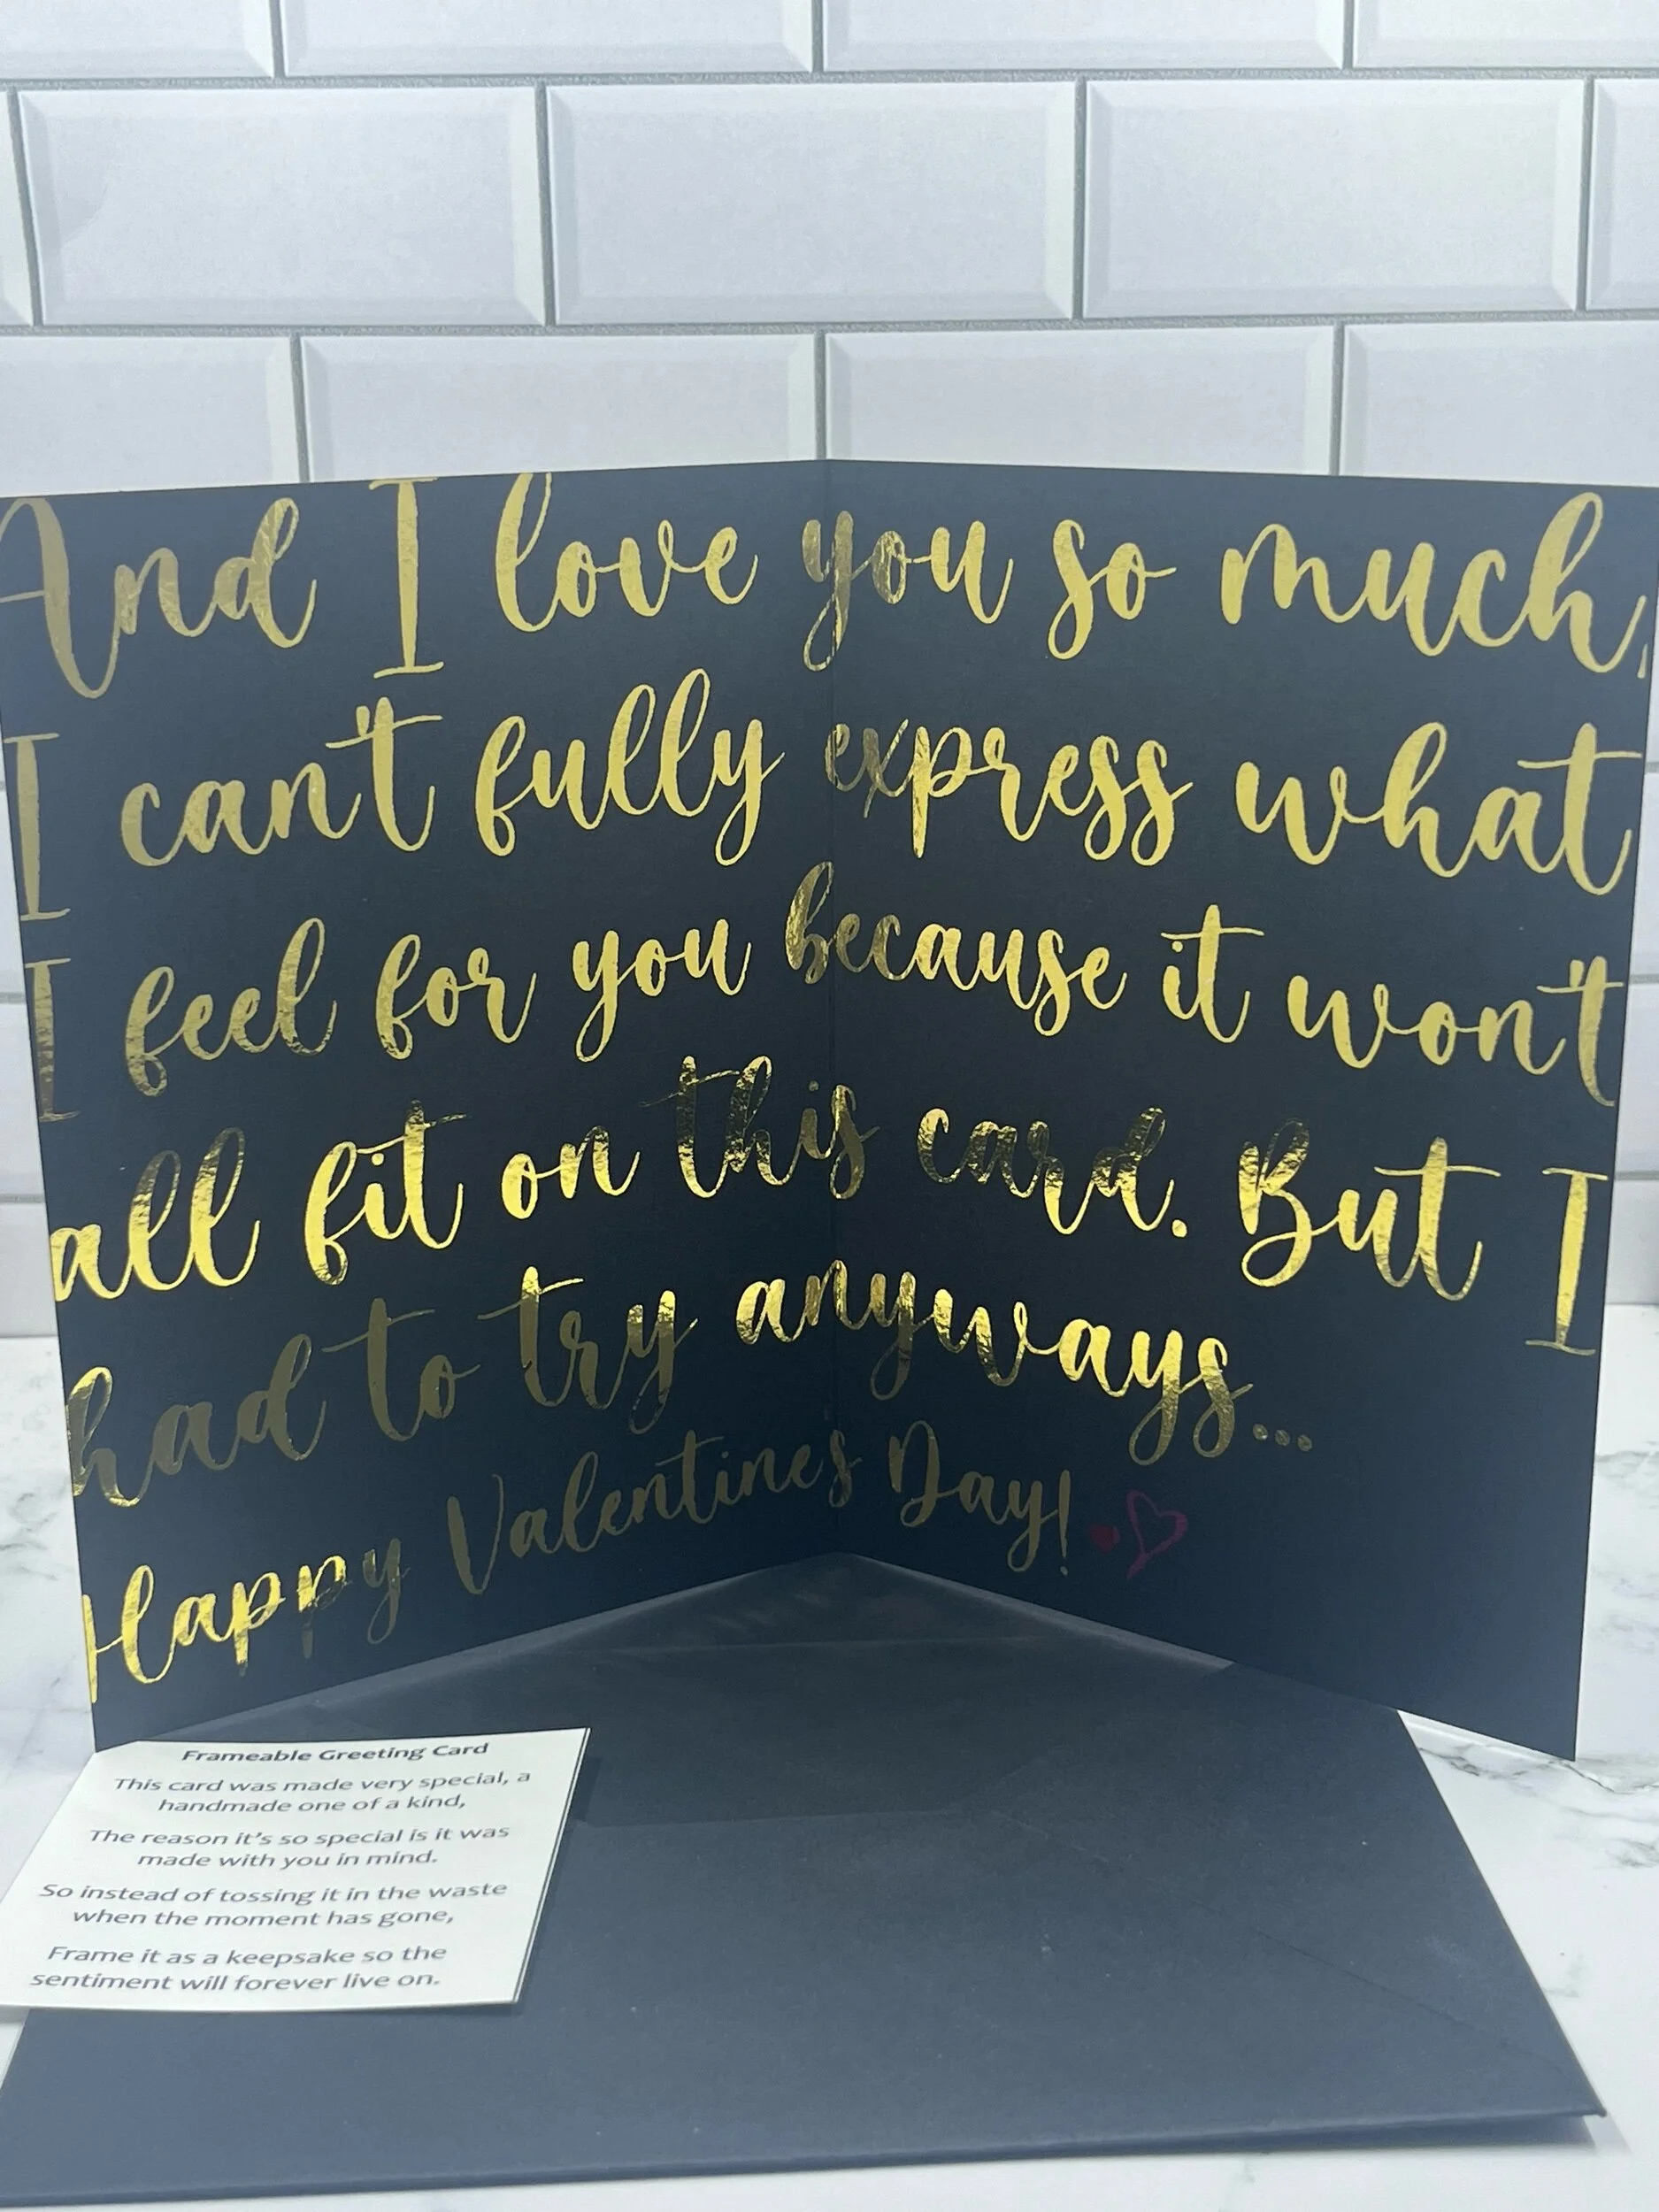 And I love you so much,
I can't fully express what
I feel for you because it won't
all fit on this card. But I
had to try anyways...
Happy Valentine's Day!
Frameable Greeting Card
This card was made very special, a
handmade one of a kind,
The reason it's so special is it was
made with you in mind.
So instead of tossing it in the waste
when the moment has gone,
Frame it as a keepsake so the
sentiment will forever live on.